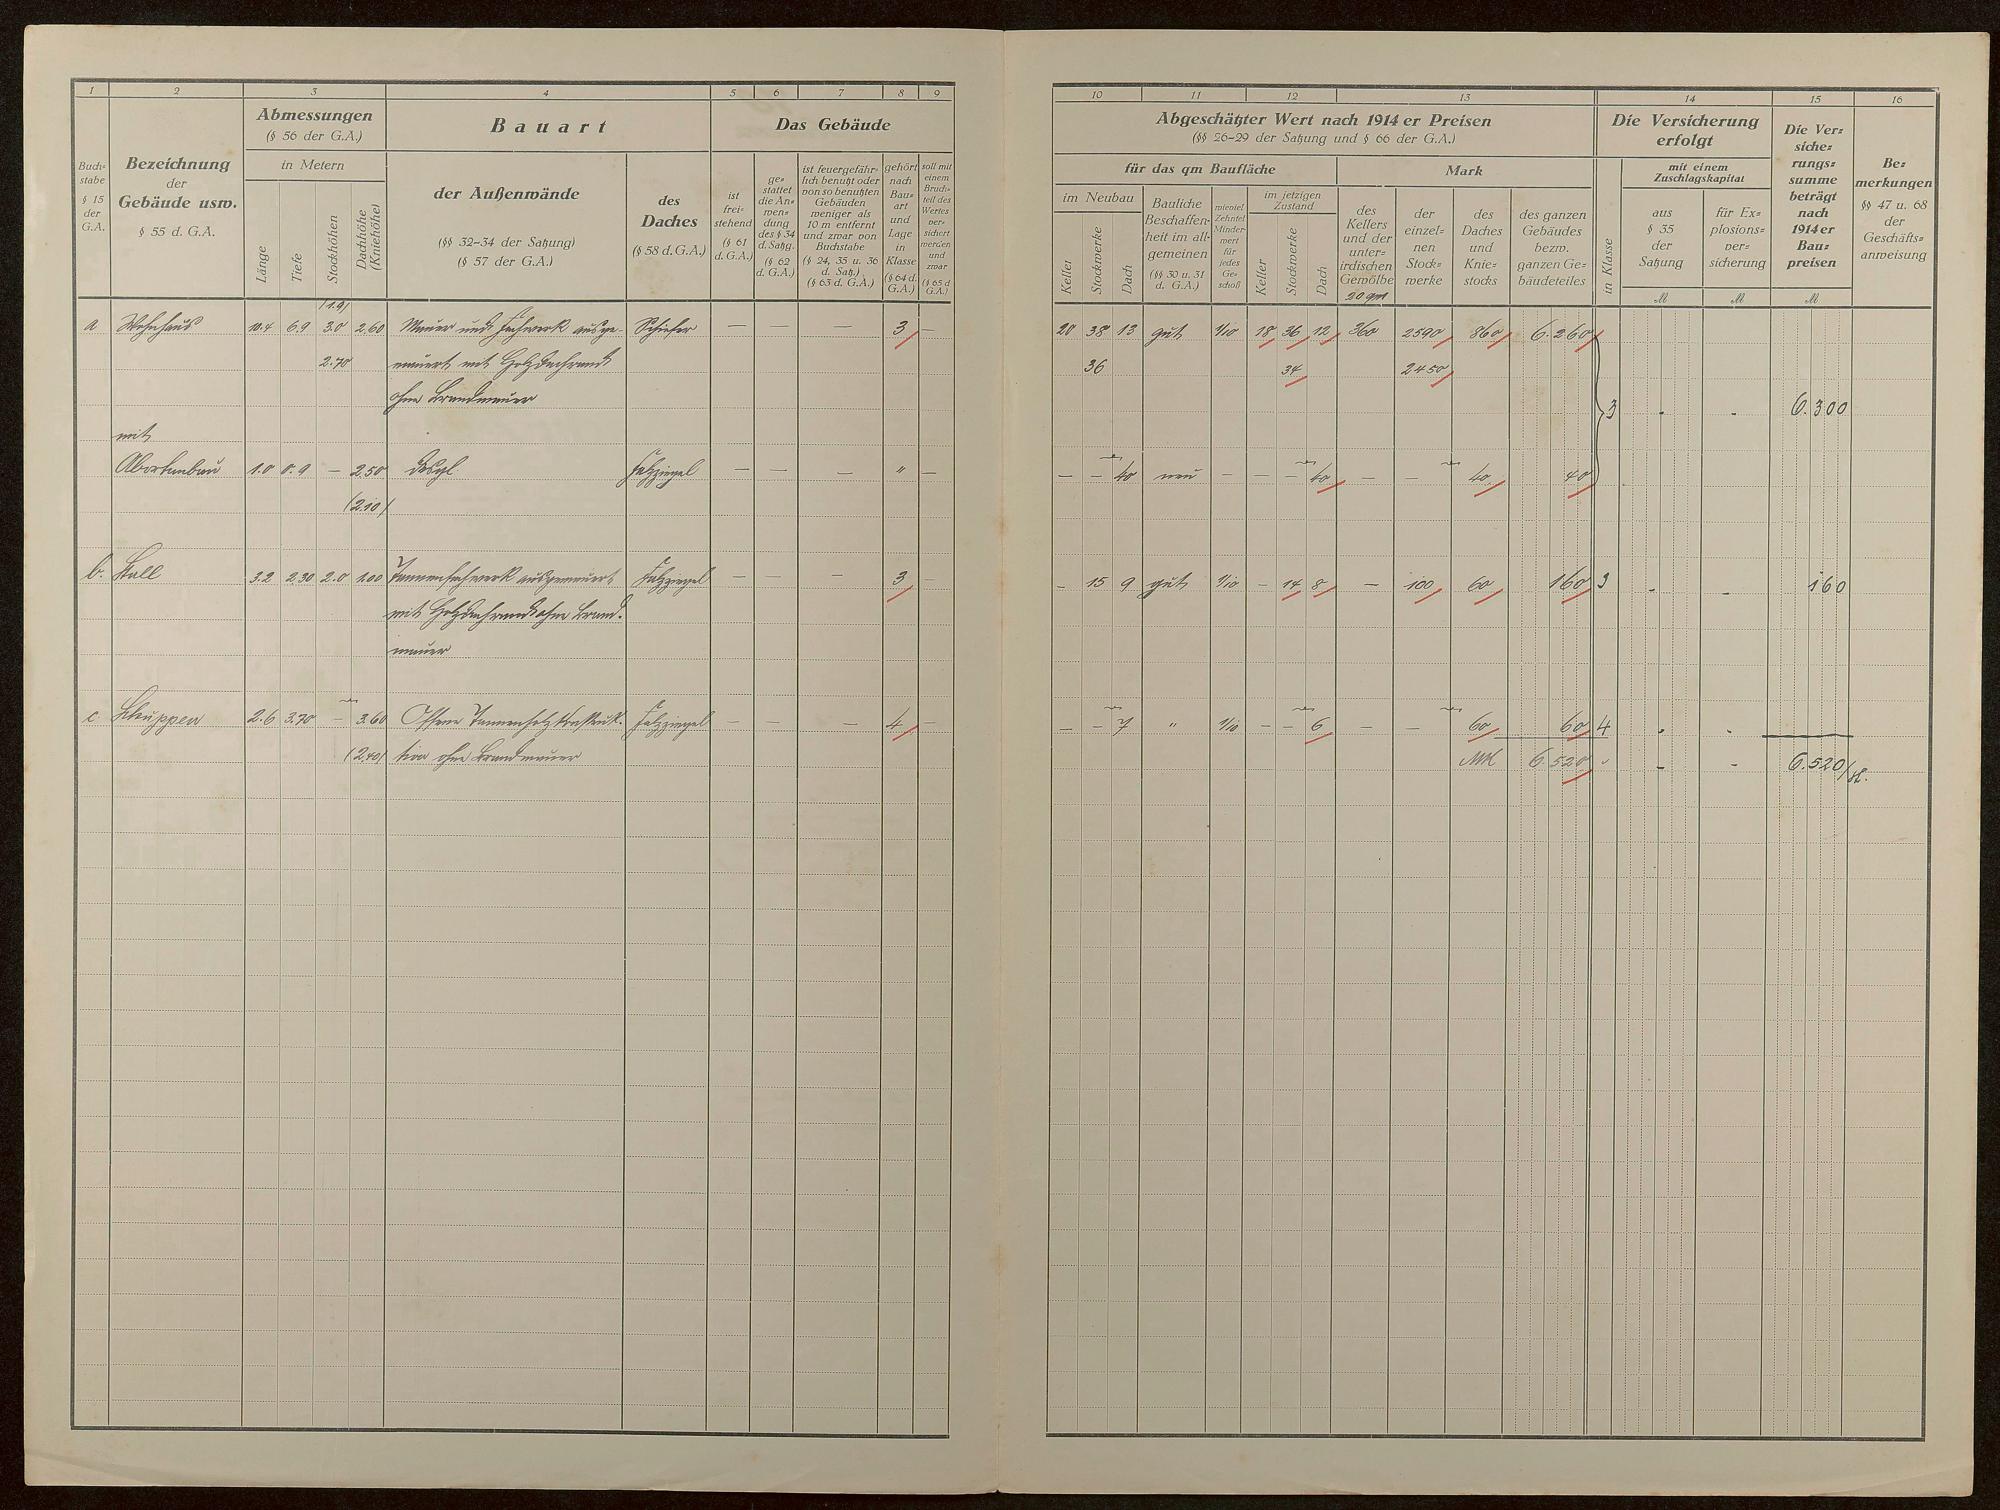 1 2 3 4 5 6 7 8 9
Buch=
stabe
§ 15
der
G.A.
Bezeichnung
der
Gebäude usw.
§ 55 d. G.A.
Abmessungen
(§ 56 der G.A.)
in Metern
Länge
Tiefe
Stockhöhen
Dachhöhe
(Kniehöhe)
Bauart
der Außenwände
(§§ 32-34 der Satzung)
(§ 57 der G.A.)
des
Daches
(§ 58 d. G.A.)
Das Gebäude
ist
frei=
stehend
(§ 61
d. G.A.)
ge=
stattet
die An=
wen=
dung
des § 34
d. Satzg.
(§ 62
d. G.A.)
ist feuergefähr=
lich benutzt oder
von so benutzten
Gebäuden
weniger als
10 m entfernt
und zwar von
Buchstabe
(§ 24, 35 u. 36
d. Satz.)
(§ 63 d. G.A.)
gehört
nach
Bau=
art
und
Lage
in
Klasse
(§ 64 d.
G.A.)
soll mit
einem
Bruch=
teil des
Wertes
ver=
sichert
werden
und
zwar
(§ 65 d.
G.A.)
(1.9)
a Wohnhaus 10.4 6.9 3.0 2.60 Mauer und Fachwerk ausge- Schiefer — — — 3 —
2.70 mauert mit Holzdachrand
ohne Brandmauer
mit
Abortanbau 1.0 0.9 — 2.50 desgl Falzziegel — — — " —
(2.10)
b. Stall 3.2 2.30 2.0 1.00 Tannenfachwerk ausgemauert Falzziegel — — — 3 —
mit Holzdachrand ohne Brand-
mauer
c. Schuppen 2.6 3.70 — 3.60 Offene Tannenholzkonstruk- Falzziegel — — — 4 —
(2.40) tion ohne Brandmauer
10 11 12 13 14 15 16
Abgeschätzter Wert nach 1914 er Preisen
(§§ 26-29 der Satzung und § 66 der G.A.)
für das qm Baufläche
im Neubau
Keller
Stockwerke
Dach
Bauliche
Beschaffen=
heit im all=
gemeinen
(§§ 30 u. 31
d. G.A.)
wieviel
Zehntel
Minder=
wert
für
jedes
Ge=
schoß
im jetzigen
Zustand
Keller
Stockwerke
Dach
Mark
des
Kellers
und der
unter=
irdischen
Gewölbe
20 qm
der
einzel=
nen
Stock=
werke
des
Daches
und
Knie=
stocks
des ganzen
Gebäudes
bezw.
ganzen Ge=
bäudeteiles
Die Versicherung
erfolgt
in Klasse
mit einem
Zuschlagskapital
aus
§ 35
der
Satzung
für Ex=
plosions=
ver=
sicherung
Die Ver=
siche=
rungs=
summe
beträgt
nach
1914 er
Bau=
preisen
Be=
merkungen
§§ 47 u. 68
der
Geschäfts=
anweisung
M M M
20 38 13 gut 1/10 18 36 12 360 2590 860 6.260
36 34 2450
3 - - 6.300
— — 40 neu — — — 40 — — 40 40
— 15 9 gut 1/10 — 14 8 — 100 60 160 3 - - 160
— — 7 " 1/10 — — 6 — — 60 60 4 - -
MK 6.520 - - 6.520